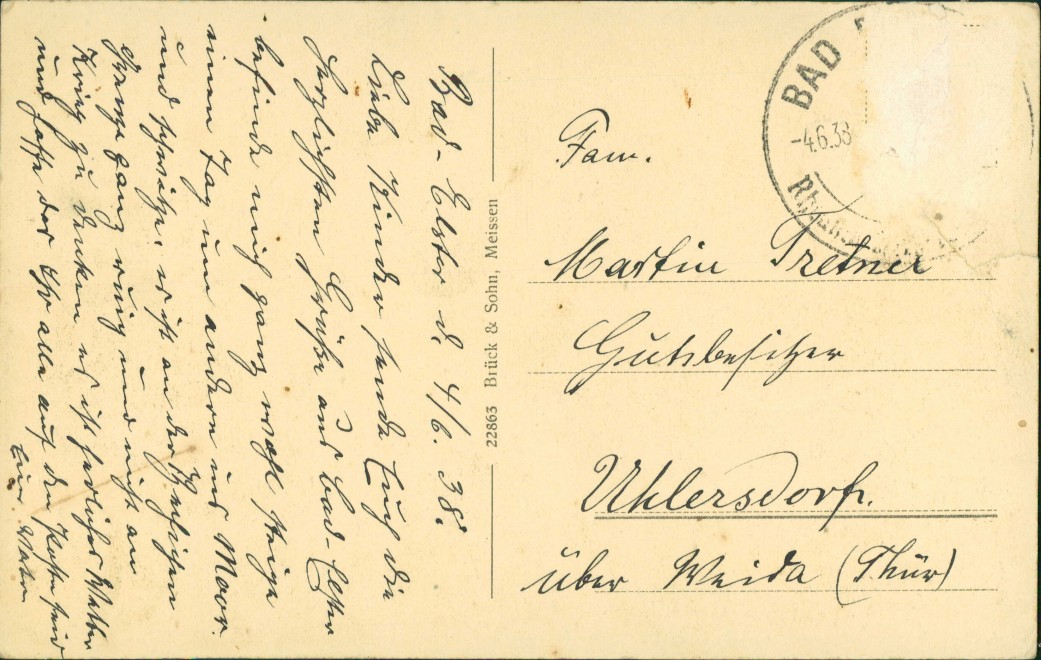 Bad-Elster d. 4/6. 38.
Liebe Kinder sende Euch die
herzlichsten Grüße aus Bad-Elster
befinde mich ganz wohl steige
einen Tag um andern ins Moor.
und schwitze. es ist an der
Grenze ganz ruig und nicht an
Krieg zu denken es ist herliches Wetter
und hoffe das Ihr alle auf den Posten seid
Euer Vater
22863 Brück & Sohn, Meissen
BAD
-4.6.38
Fam.
Martin Tretner
Gutsbesitzer
Uhlersdorf.
über Weida (Thür)